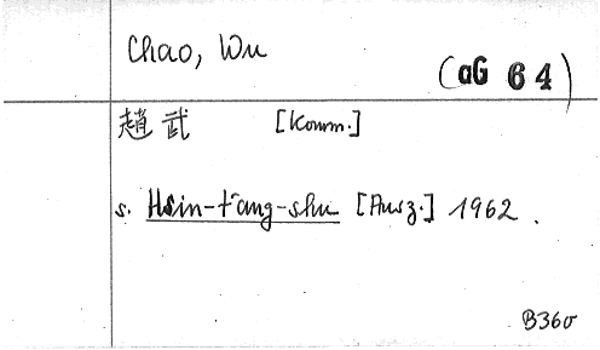 Chao, Wu
(aG 64)
趙武 [Komm.]
s. Hsin-t'ang-shu [Ausz.] 1962.
B360